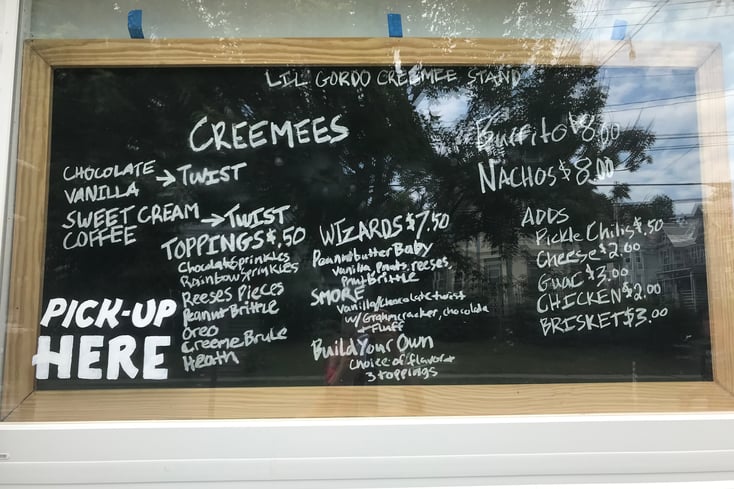 LIL GORDO CREEMEE STAND
CREEMEES
CHOCOLATE
VANILLA → TWIST
SWEET CREAM
COFFEE → TWIST
TOPPINGS $.50
Chocolate Sprinkles
Rainbow Sprinkles
Reeses Pieces
Peanut Brittle
Oreo
Creeme Brule
Heath
PICK-UP
HERE
WIZARDS $7.50
Peanutbutter Baby
Vanilla, Pnuts, reeses,
Pnut Brittle
SMORE
Vanilla/chocolate twist
w/ Grahmcracker, chocolate
+ Fluff
Build Your Own
Choice of flavor +
3 toppings
Burrito $8.00
NACHOS $8.00
ADDS
Pickle Chilis $.50
Cheese $2.00
Guac $3.00
CHICKEN $2.00
BRISKET $3.00